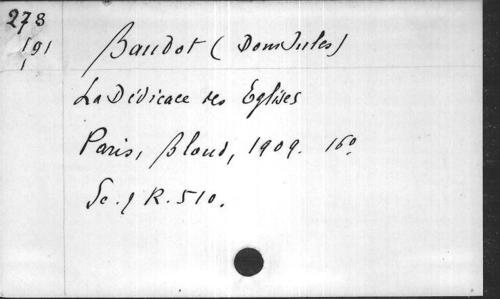 278
191
1
Baudot (Dom Jules)
La Dédicace des Eglises
Paris, Bloud, 1909. 16º
Sc. f R. 510.